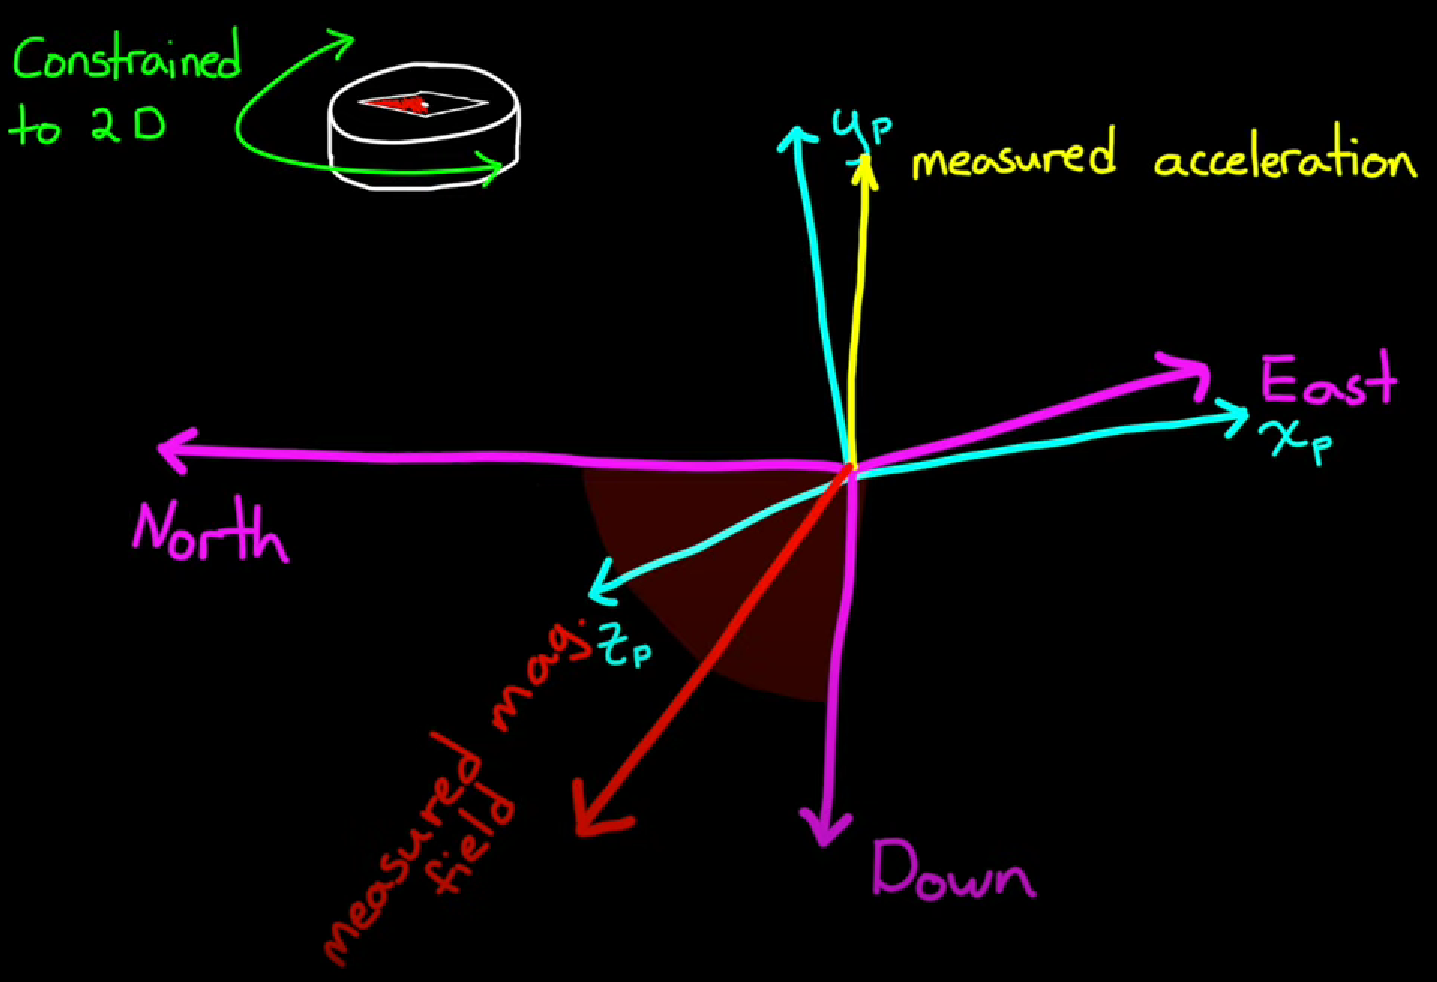 Constrained
to 2D
yₚ
measured acceleration
East
xₚ
North
zₚ
measured mag.
field
Down